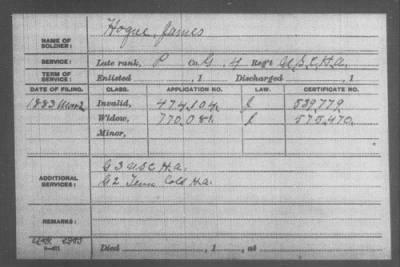 Hogue, James
NAME OF SOLDIER:
SERVICE: Late rank, P Co. G, 4 Reg't U.S.C.H.A.
TERM OF SERVICE: Enlisted , 1 Discharged , 1
DATE OF FILING. CLASS. APPLICATION NO. LAW. CERTIFICATE NO.
1883 Invalid, 474,104 539,779
Widow, 770,081 575,470
Minor,
ADDITIONAL SERVICES:
G 3 U.S.C. H.A.
G 2 Tenn Cold H.A.
REMARKS:
Died , 1 , at